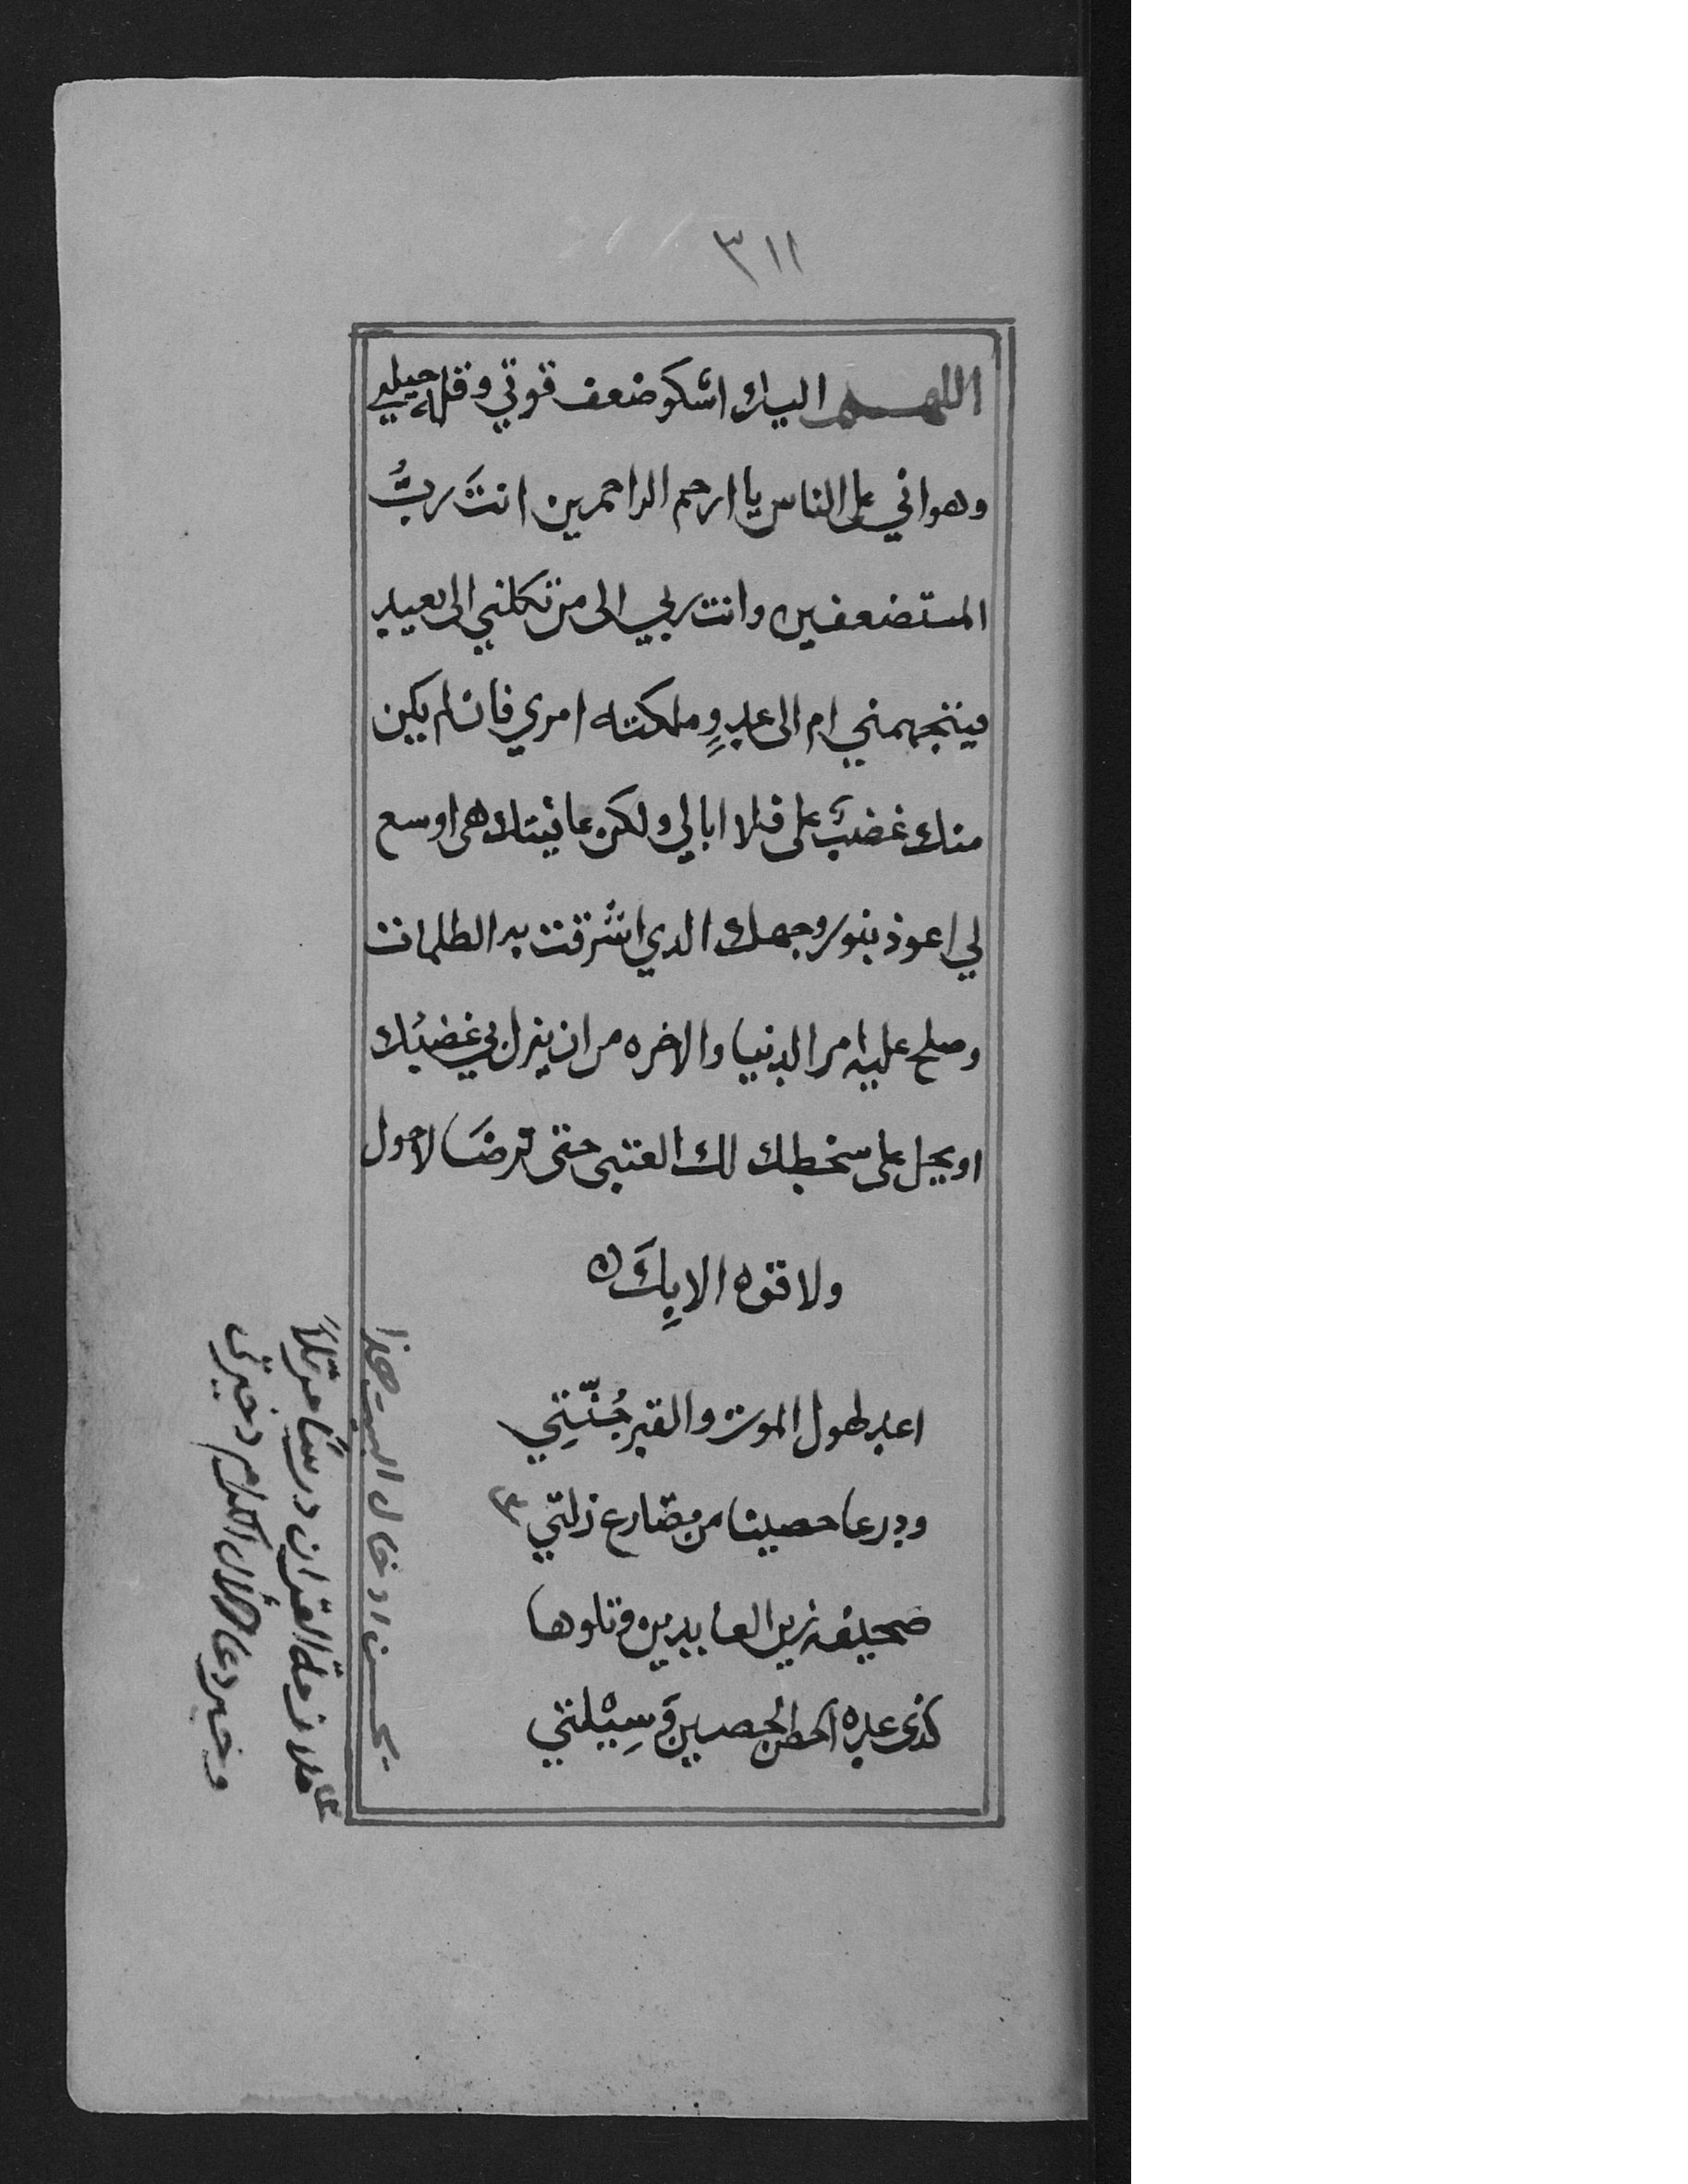 ٣١١
اللهم اليك اشكو ضعف قوتي وقله حيلتي
وهواني على الناس يا ارحم الراحمين انتَ ربُّ
المستضعفين وانت ربي الى من تكلني الى بعيد
فيتجهمني ام الى عدوٍ ملكته امري فان لم يكن
منك غضبَ على فلا ابالي ولكن عافيتك هى اوسع
لي اعوذ بنور وجهك الدي اشرقت به الظلمات
وصلح عليه امر الدنيا والاخره من ان ينزل بي غضبُك
او يحل على سخطك لك العتبى حتى ترضَا لا حول
ولا قوه الا بِكَ
اعد لهول الموت والقبر جُنَّتِي
ودرعا حصينا من مصارع زلتي
صحيفه زين العابدين وتلوها
كذى عده الحصن الحصين وَسِيْلتي
يحسن ادخال البيت هذا
ملازمة القران درسًا مرتلاً
وخير دعا الآل اكرم دخيرتي